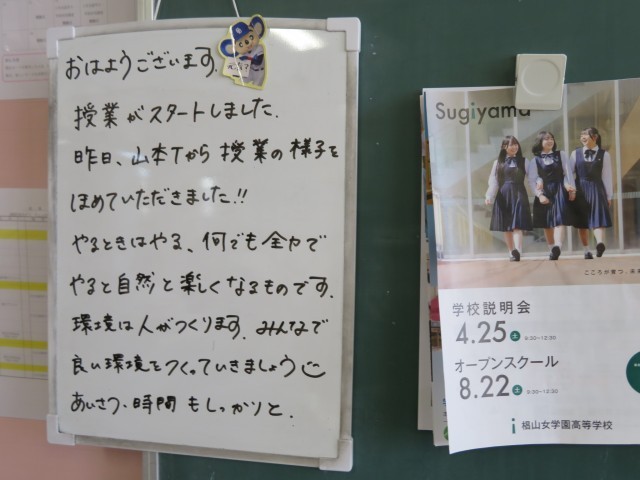 おはようございます.
授業がスタートしました.
昨日、山本Tから授業の様子を
ほめていただきました!!
やるときはやる、何でも全力で
やると自然と楽しくなるものです.
環境は人がつくります. みんなで
良い環境をつくっていきましょう
あいさつ・時間もしっかりと.
Sugiyama
こころが育つ。未来
学校説明会
4.25 土 9:30-12:30
オープンスクール
8.22 土 9:30-12:30
椙山女学園高等学校